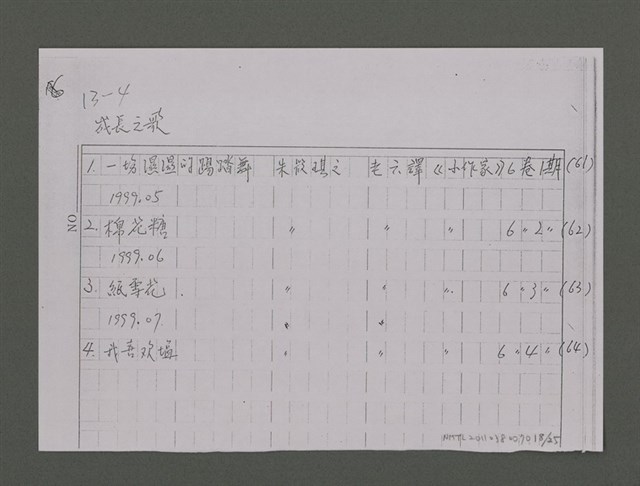 13-4
成長之飛
1. 一場濕濕的踢踏舞 朱 之 老六譯 《小作家》6卷1期(61)
1999.05
2. 棉花糖 〃 〃 〃 6〃2〃(62)
1999.06
3. 紙雪花. 〃 〃 〃. 6〃3〃(63)
1999.07 〃 〃
4. 我喜欢 〃 〃 〃 6〃4〃(64)
NO
NMTL20110380070